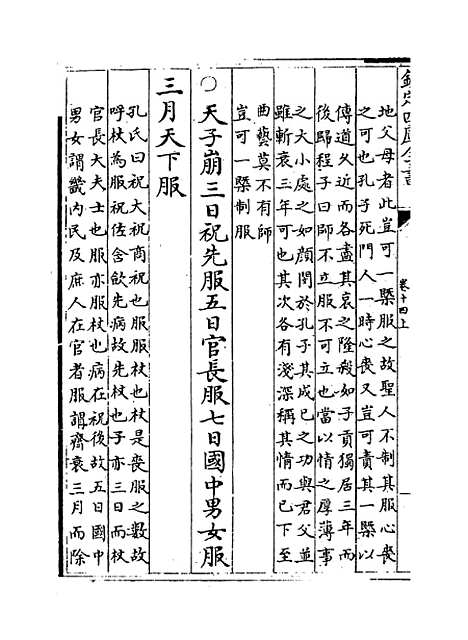 欽定四庫全書
卷十四上
地父母者此豈可一槩服之故聖人不制其服心喪
之可也孔子死門人一時心喪又豈可責其一槩以
傳道久近而各盡其哀之隆殺如子貢獨居三年而
後歸程子曰師不立服不可立也當以情之厚薄事
之大小處之如顔閔於孔子其成已之功與君父並
雖斬衰三年可也其次各有淺深稱其情而已下至
曲藝莫不有師
豈可一槩制服
○天子崩三日祝先服五日官長服七日國中男女服
三月天下服
孔氏曰祝大祝商祝也服服杖也杖是喪服之數故
呼杖為服祝佐含斂先病故先杖也子亦三日而杖
官長大夫士也服亦服杖也病在祝後故五日國中
男女謂畿内民及庶人在官者服謂齊衰三月而除